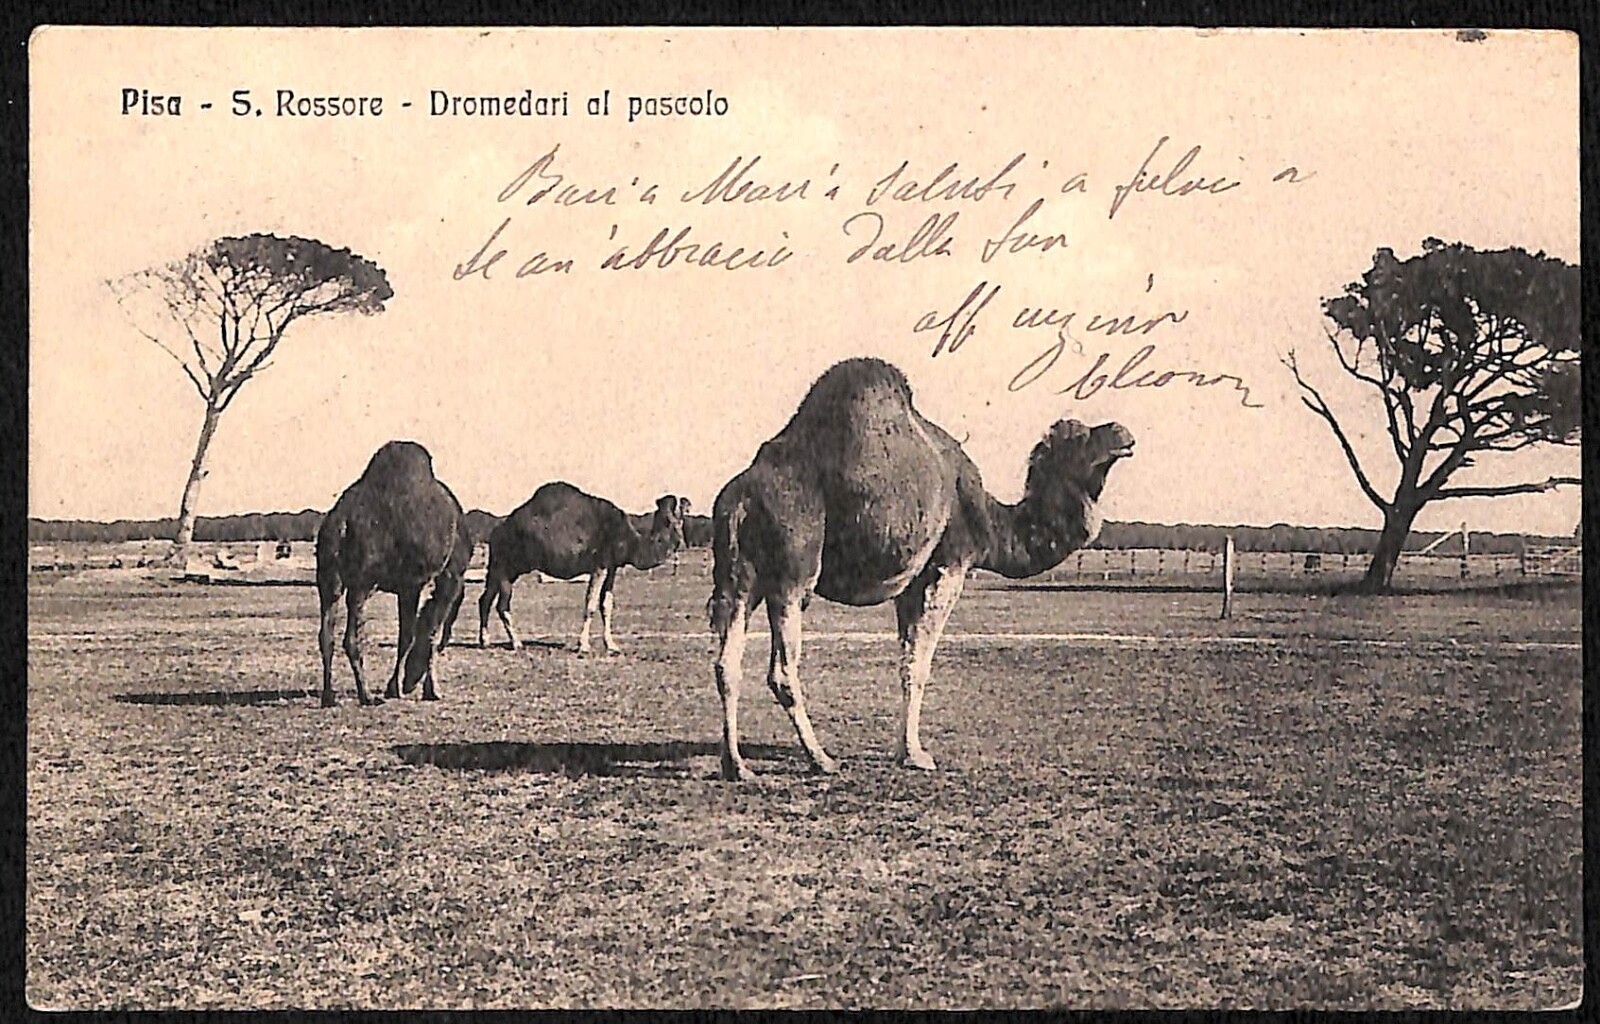 Pisa - S. Rossore - Dromedari al pascolo
Baci a Maria saluti a Fulvio a
te un abbraccio dalla tua
aff cugina
Eleonor